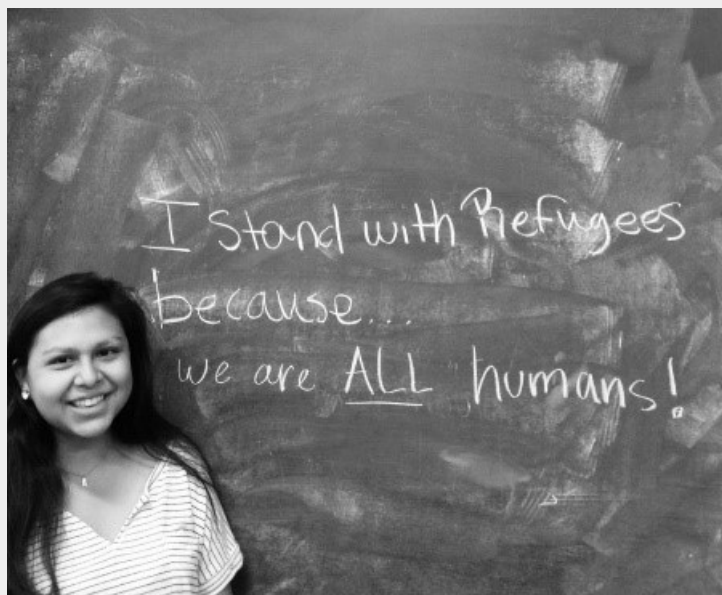 I stand with Refugees
because...
we are ALL humans!